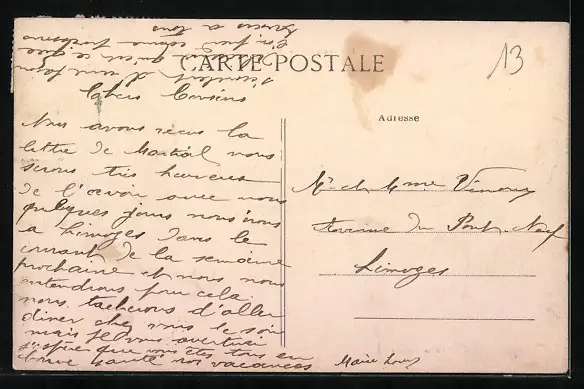 CARTE POSTALE
13
Adresse
Chers Cousins
Nous avons reçus la
lettre de Martial nous
serons très heureux
de l'avoir avec nous
quelques jours nous irons
a Limoges dans le
courant de la semaine
prochaine et nous nous
entendrons pour cela.
nous tacherons d'aller
diner chez vous le soir
mais je vous avertirai
j'espère que vous êtes tous en
bonne santé nos vacances
s'écoulent
qu'est ce que
l'on peut
Baisers a tous
Marie Lou
Mr et Mme
Avenue du Pont-Neuf
Limoges